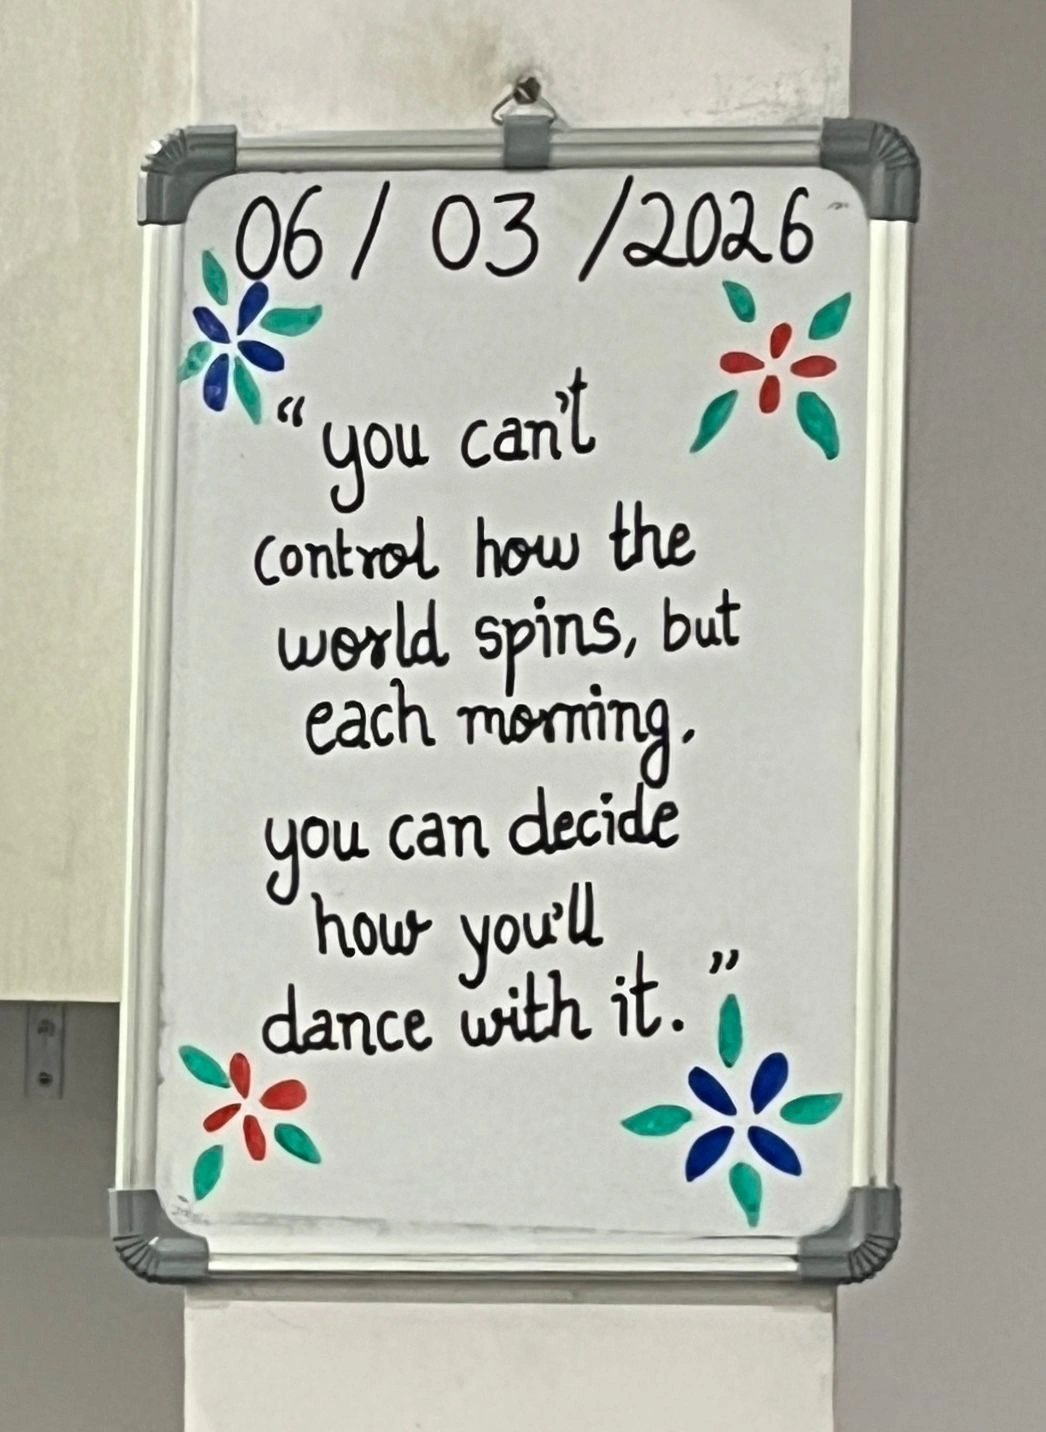 06/03/2026
“you can't
control how the
world spins, but
each morning,
you can decide
how you'll
dance with it.”